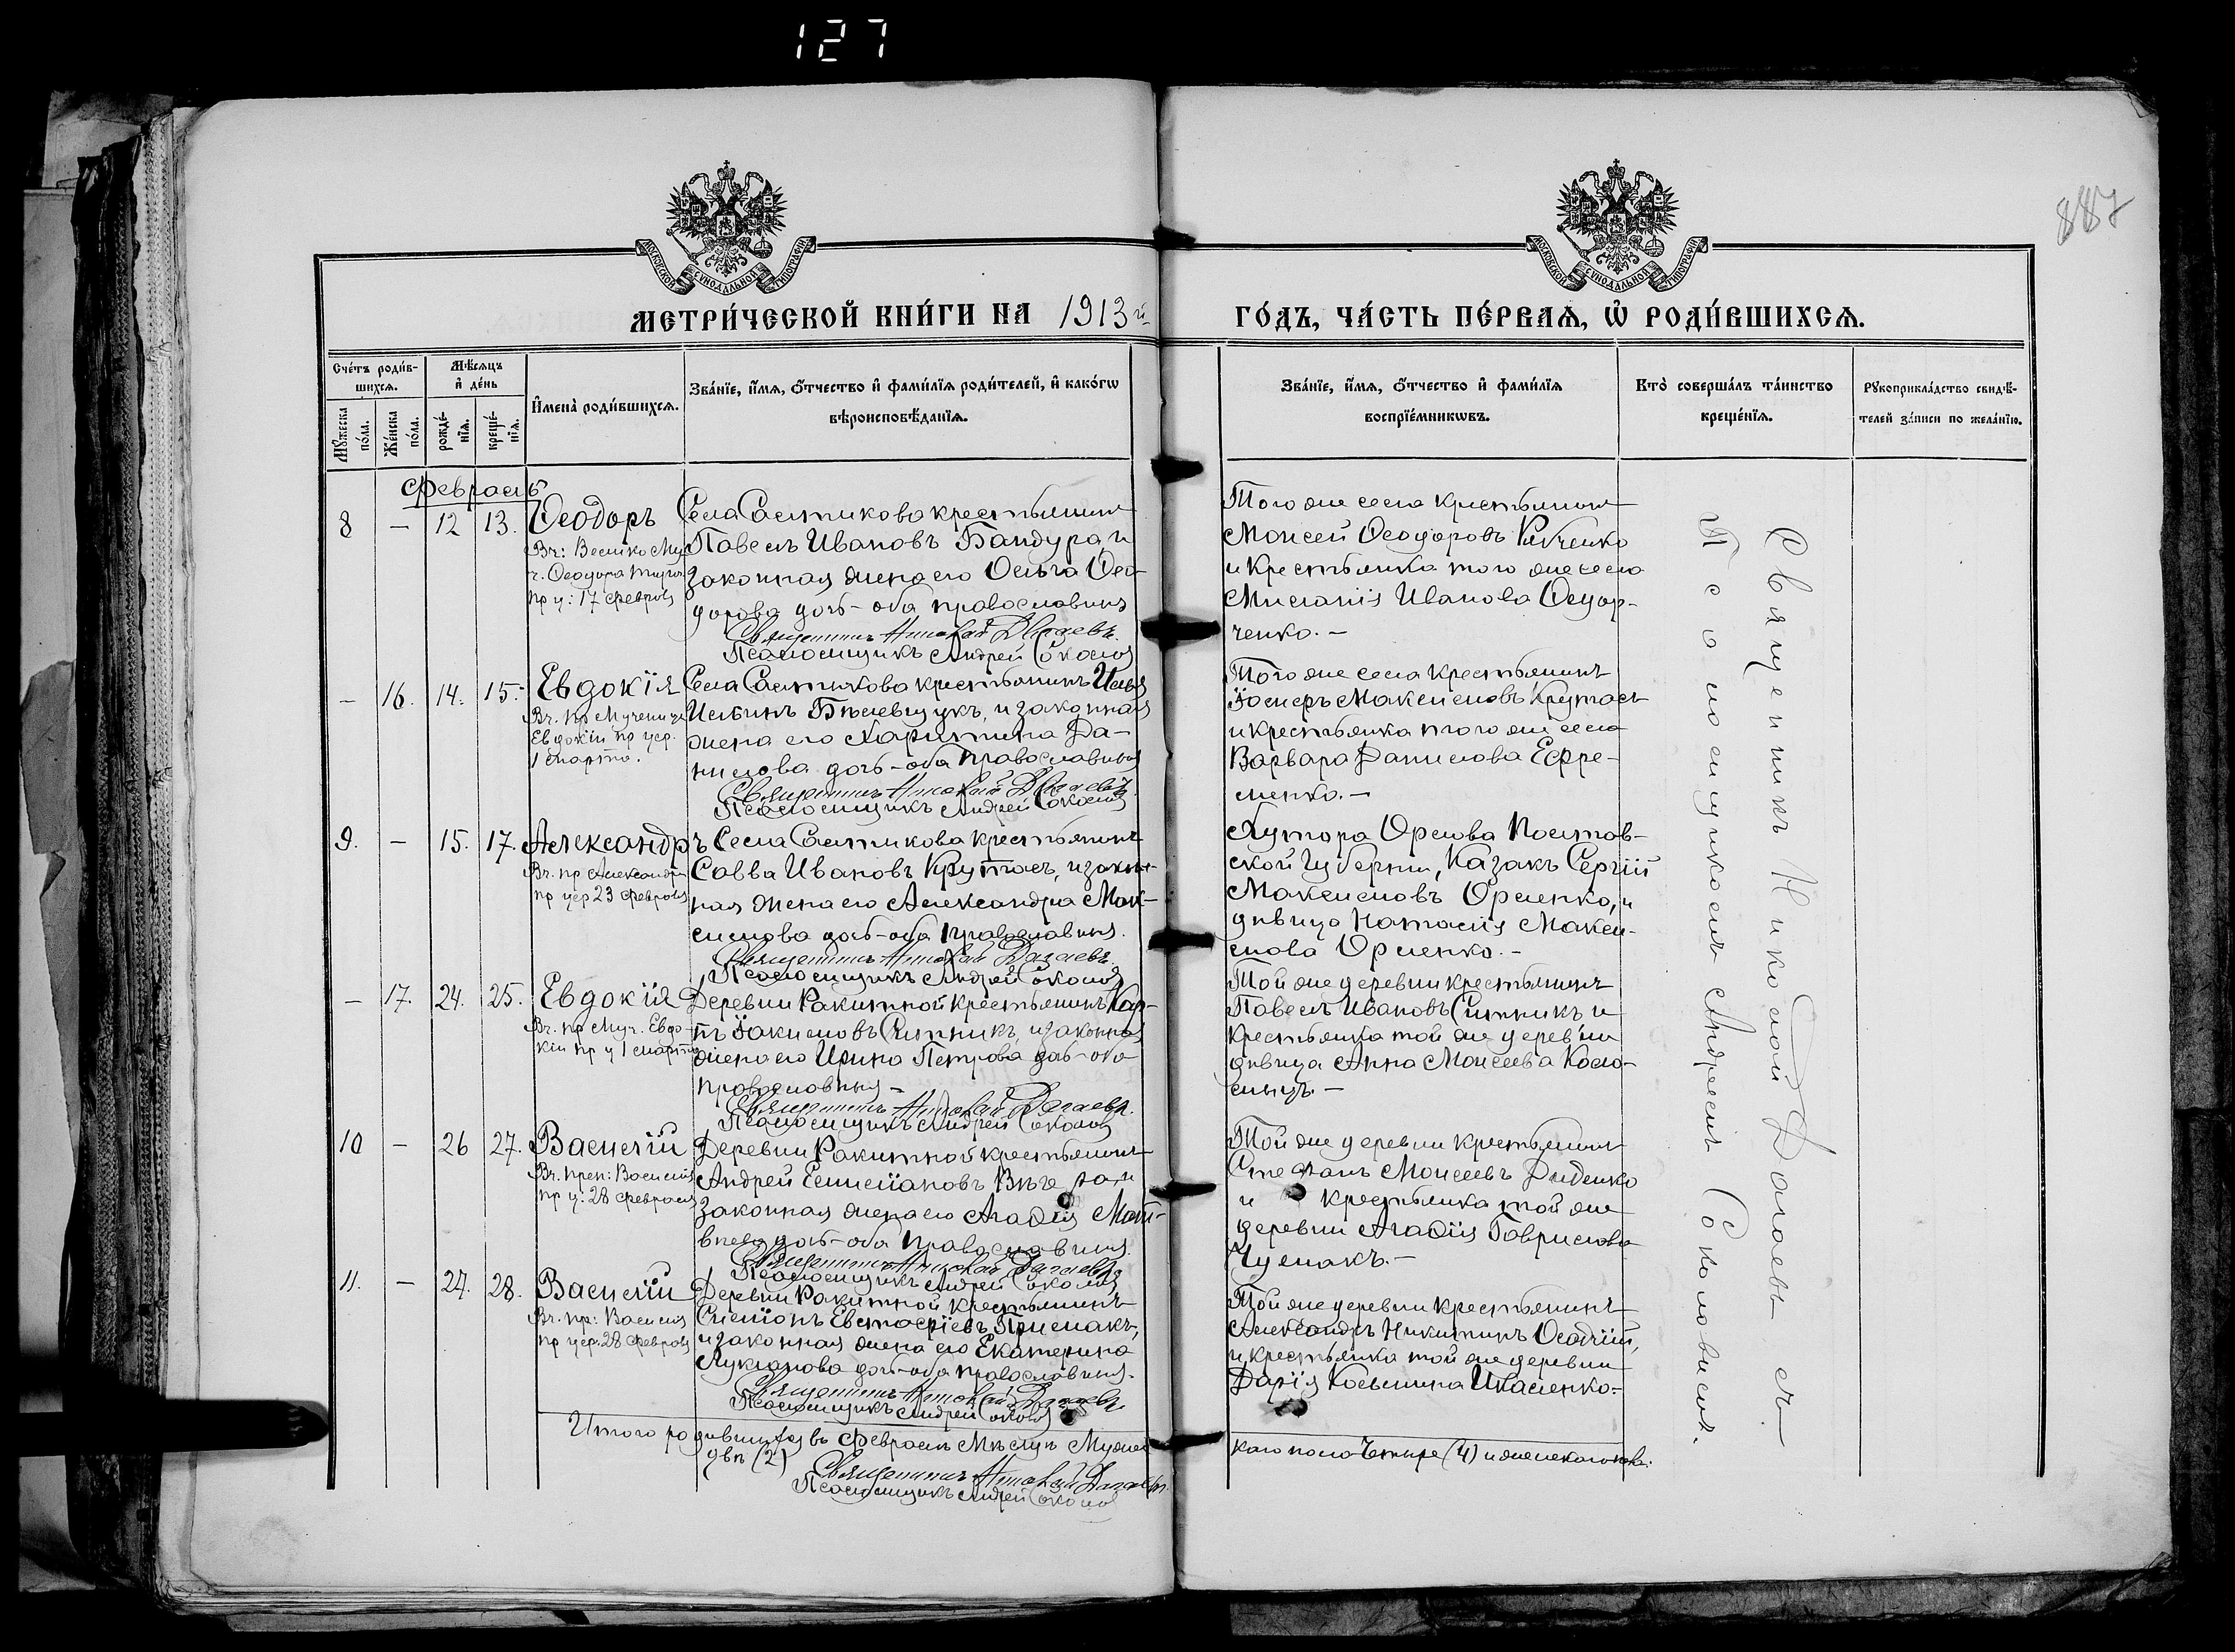 127
887
МОСКОВСКОЙ СУНОДАЛЬНОЙ ТИПОГРАФІИ
МОСКОВСКОЙ СУНОДАЛЬНОЙ ТИПОГРАФІИ
МЕТРИ́ЧЕСКОЙ КНИ́ГИ НА 1913 й
ГО́ДЪ, ЧА́СТЬ ПЕ́РВАѦ, Ѡ҆ РОДИ́ВШИХСѦ.
Сче́тъ роди́в-
шихсѧ.
Мѣ́сѧцъ
и҆ де́нь
Мꙋ́жеска
по́ла.
Же́нска
по́ла.
рожде́-
нїѧ.
креще́-
нїѧ.
И҆мена̀ роди́вшихсѧ.
Зва́нїе, и҆́мѧ, ѻ҆́тчество и҆ фами́лїѧ роди́телей, и҆ како́гѡ
вѣроисповѣ́данїѧ.
Зва́нїе, и҆́мѧ, ѻ҆́тчество и҆ фами́лїѧ
воспрїе́мникѡвъ.
Кто̀ соверша́лъ та́инство
креще́нїѧ.
Рꙋкоприкла́дство свидѣ́-
телей за́писи по жела́нїю.
Февраль
8 — 12 13. Ѳеодоръ
Вч: Велико Муч
ч. Ѳеодора Тирон
пр ц: 17 февраля
Села Салтикова крестьянинъ
Павелъ Ивановъ Бандура, и
законная жена его Ольга Ѳео-
дорова дочь - оба православныя
Священникъ Николай Далаевъ.
Псаломщикъ Андрей Соколов
Того же села крестьянинъ
Моисей Ѳеодоровъ
и крестьянка того же села
Иванова Ѳедор-
ченко. —
— 16. 14. 15. Евдокія
Вч. пр Мученицы
Евдокіи пр цер.
1 Марта.
Села Салтикова крестьянинъ Илья
и законная
жена его Харитина Да-
нилова дочь - оба православныя
Священникъ Николай Далаевъ.
Псаломщикъ Андрей Соколов
Того же села крестьянинъ
Максимовъ Крутась
и крестьянка того же села
Варвара Данилова Ефре-
менко. —
9. — 15. 17. Александръ
Вч. пр Александра
пр цер 23 февраля
Села Салтикова крестьянинъ
Савва Ивановъ Крутась, и закон-
ная жена его Александра Мак-
симова дочь - оба православныя.
Священникъ Николай Далаевъ.
Псаломщикъ Андрей Соколов
Хутора Орлова Полтав-
ской губерніи, Казакъ Сергій
Максимовъ Орленко, и
дѣвица Наталія Макси-
мова Орленко. —
— 17. 24. 25. Евдокія
Вч. пр Муч. Евдо-
кіи пр ц 1 марта
Деревни Ракитной крестьянинъ Кар-
пъ Іакимовъ Ситникъ, и законная
жена его Ирина Петрова дочь - оба
православныя —
Священникъ Николай Далаевъ.
Псаломщикъ Андрей Соколов
Той же деревни крестьянинъ
Павелъ Ивановъ Ситникъ и
крестьянка той же деревни
дѣвица Анна Моисеева Коло-
міецъ. —
10 — 26 27. Василій
Вч. преп: Василія
пр ц: 28 февраля
Деревни Ракитной крестьянинъ
Андрей Емиліановъ
законная жена его Агаѳія Мат-
вѣева дочь - оба православныя.
Священникъ Николай Далаевъ
Псаломщикъ Андрей Соколов
Той же деревни крестьянинъ
Стефанъ Моисеевъ Диденко
и крестьянка той же
деревни Агаѳія Гаврилова
Чумакъ. —
11. — 27. 28. Василій
Вч. пр: Василія
пр цер. 28 февраля
Деревни Ракитной крестьянинъ
Симеонъ Евстафіевъ Примакъ,
и законная жена его Екатерина
Лукіанова дочь - оба православныя.
Священникъ Николай Далаевъ
Псаломщикъ Андрей Соколов
Той же деревни крестьянинъ
Александръ Никитинъ Осадчій,
и крестьянка той же деревни
Дарія Косьмина Ивасенко. —
Итого родившихся въ Февралѣ Мѣсяцѣ Мужес-
каго пола Четыре (4) и женскаго пола.
двѣ (2)
Священникъ Николай Далаевъ.
Псаломщикъ Андрей Соколов
Священникъ Николай Далаевъ съ
Псаломщикомъ Андреемъ Соколовымъ.